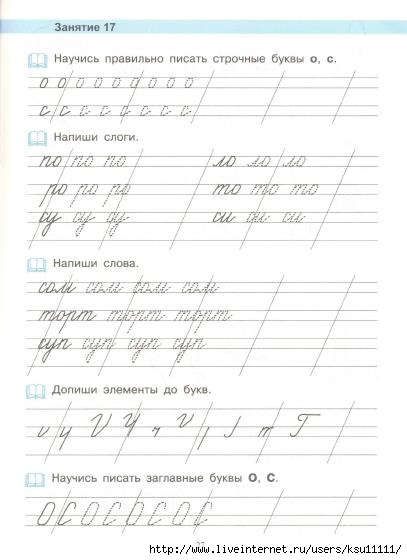 Занятие 17
Научись правильно писать строчные буквы о, с.
о о о о о о о о о
с с с с с с с с
Напиши слоги.
по по по ло ло ло
ро ро ро то то то
су су су си си си
Напиши слова.
сом сом сом сом
торт торт торт
суп суп суп суп
Допиши элементы до букв.
Научись писать заглавные буквы О, С.
О С О С О С О С
27
http://www.liveinternet.ru/users/ksu11111/